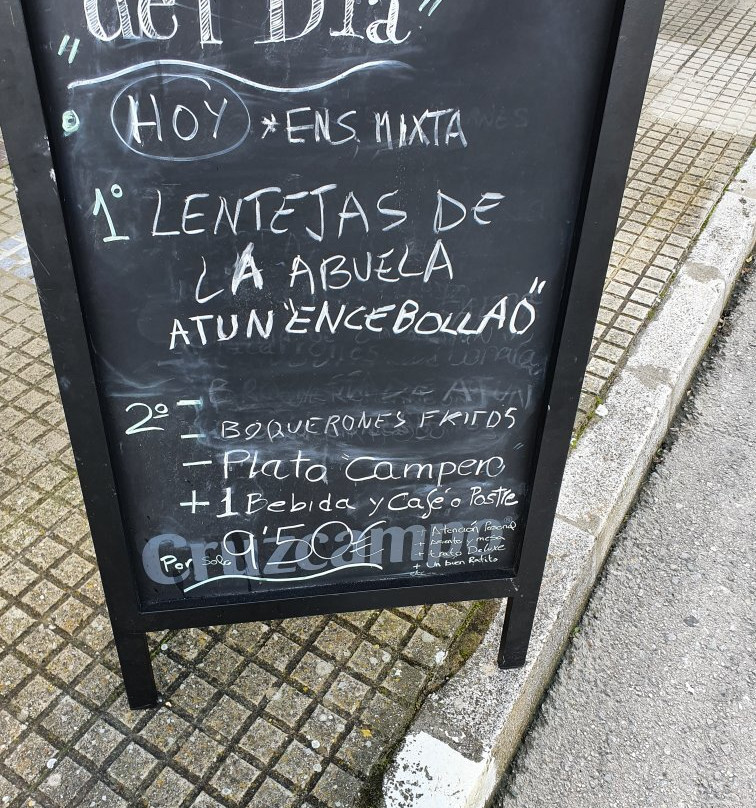 "del Día"
HOY *ENS. MIXTA
1º LENTEJAS DE
LA ABUELA
ATUN "ENCEBOLLAO"
2º - BOQUERONES FRITOS
- Plato "Campero"
+ 1 Bebida y Café o Postre
Por solo 9'50€
Cruzcam
+ Atención Personal
+ asiento y mesa
+ trato Deluxe
+ Un buen Ratito
etc...